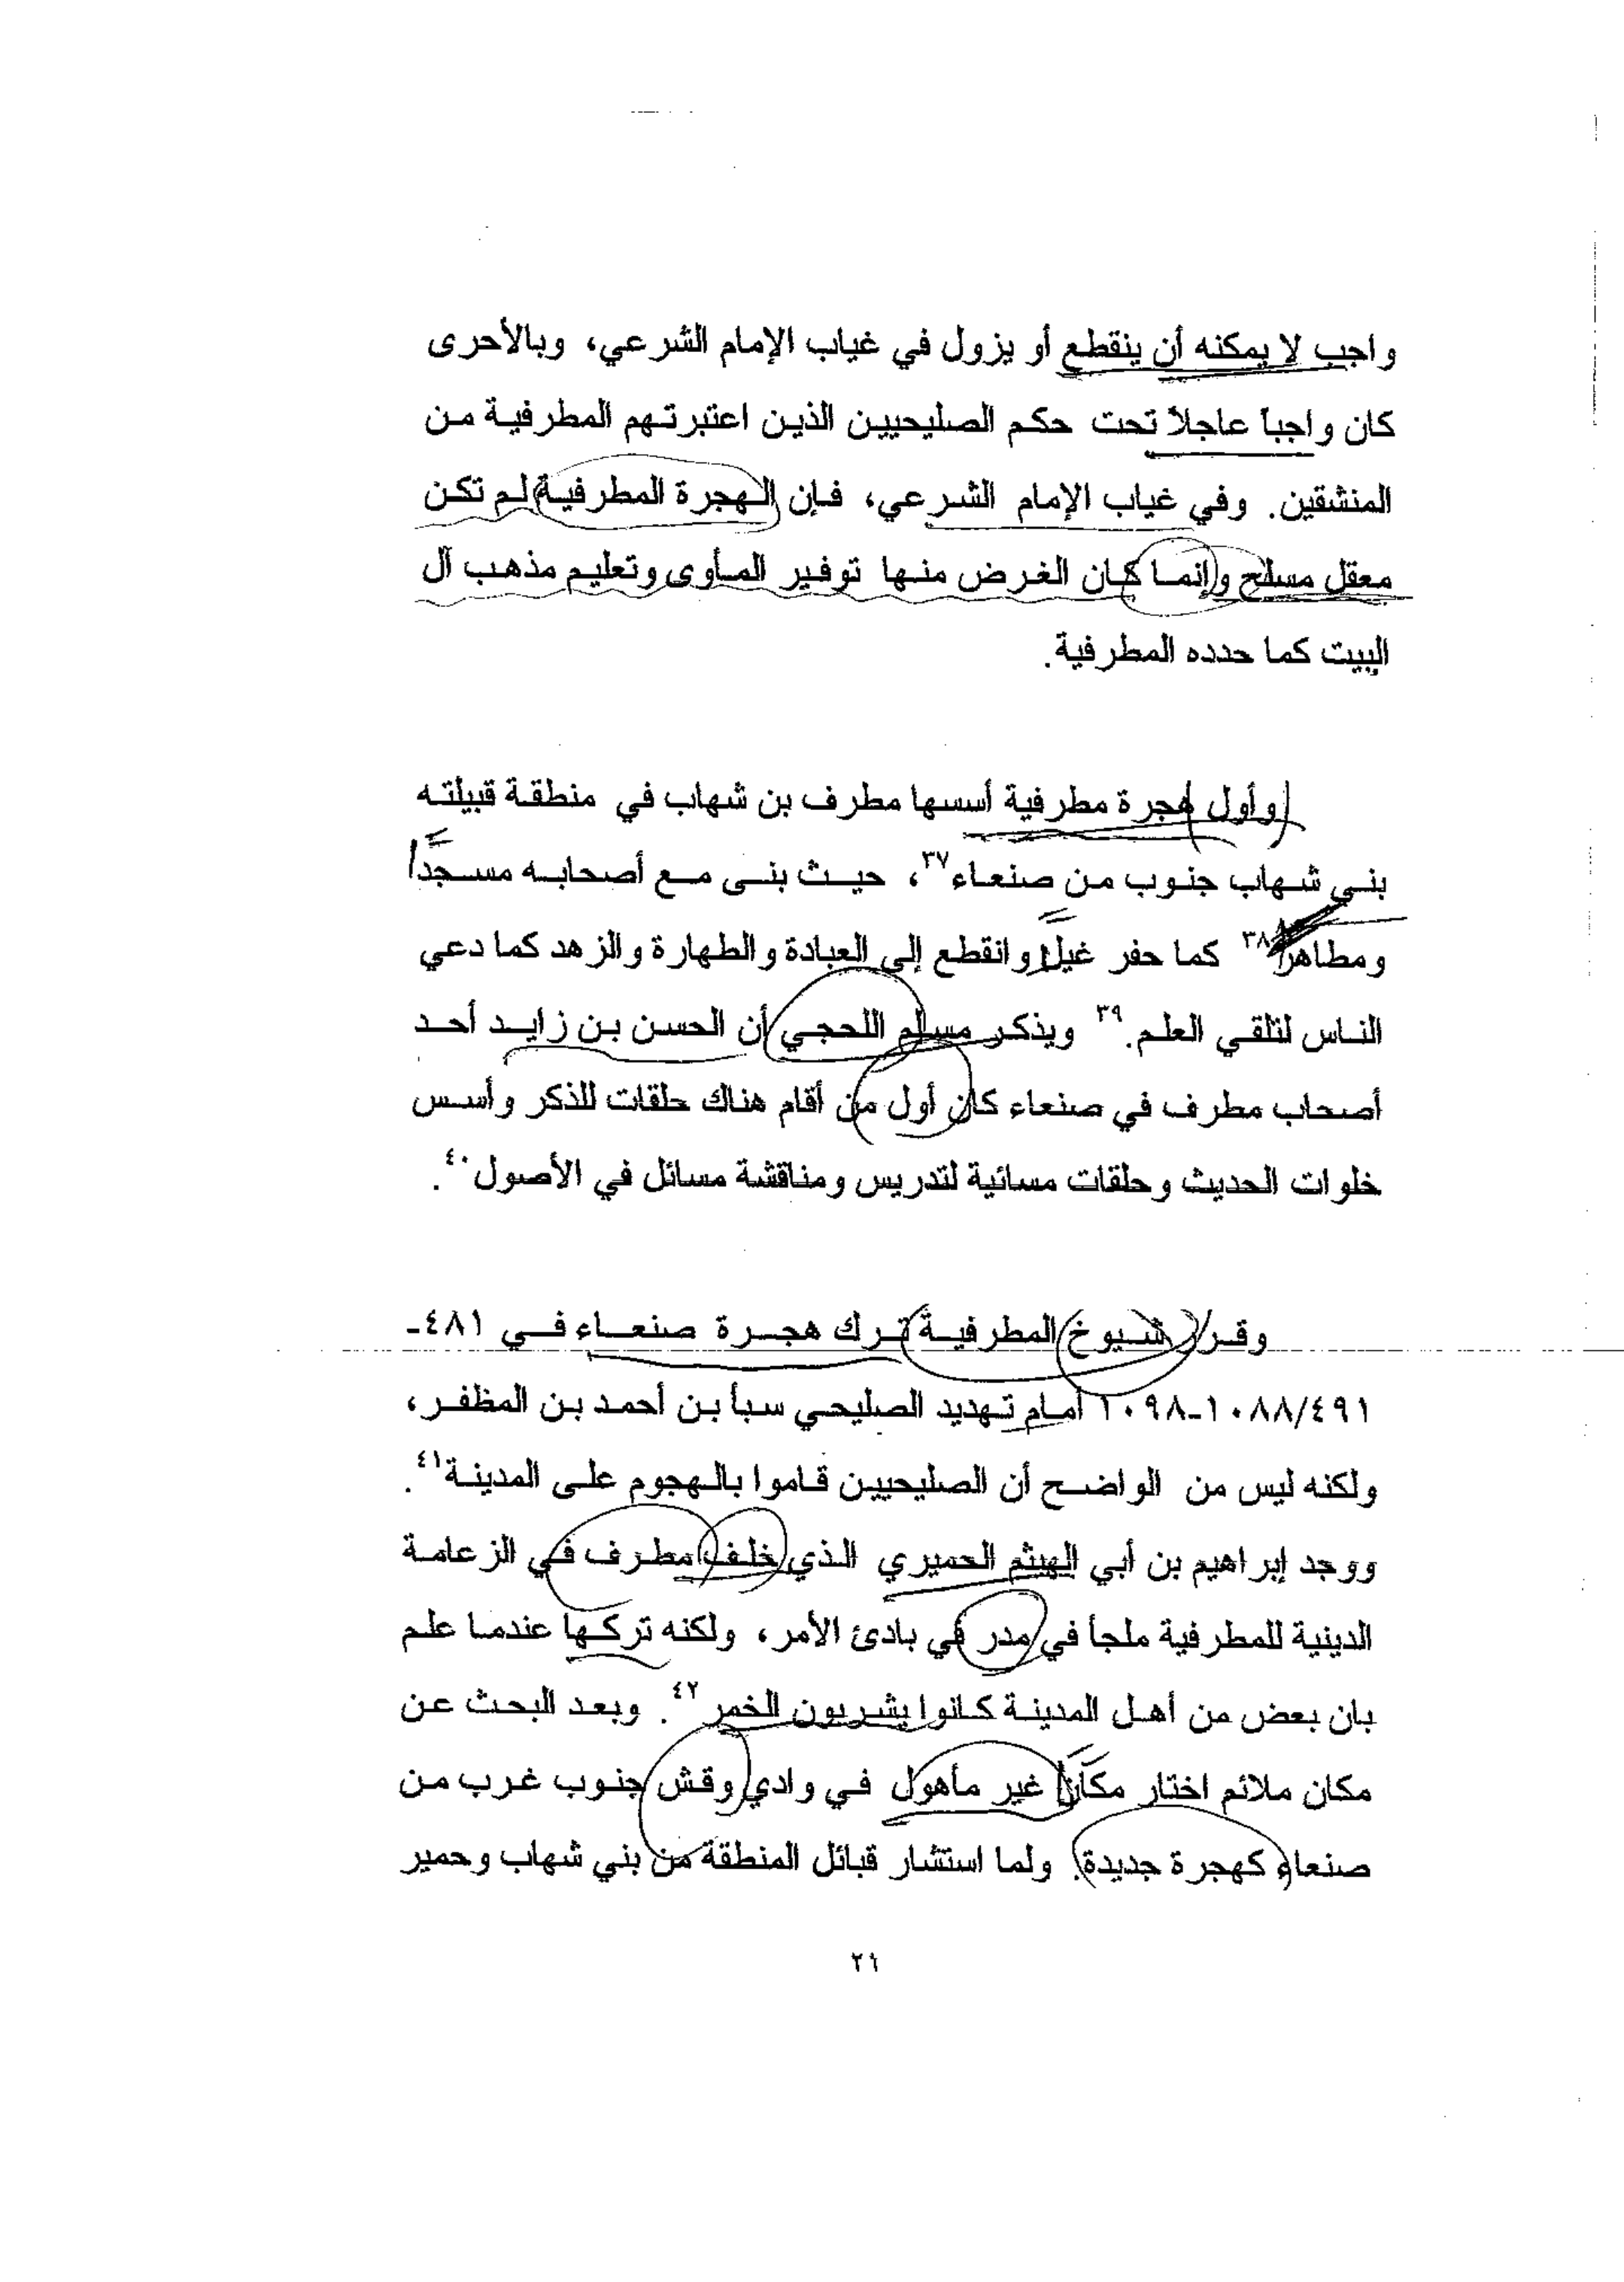 واجب لا يمكنه أن ينقطع أو يزول في غياب الإمام الشرعي، وبالأحرى
كان واجباً عاجلاً تحت حكم الصليحيين الذين اعتبرتهم المطرفية من
المنشقين. وفي غياب الإمام الشرعي، فإن الهجرة المطرفية لم تكن
معقل مسلح وإنما كان الغرض منها توفير المأوى وتعليم مذهب آل
البيت كما حدده المطرفية.
وأول هجرة مطرفية أسسها مطرف بن شهاب في منطقة قبيلته
بني شهاب جنوب من صنعاء٣٧، حيث بنى مع أصحابه مسجداً
ومطاهر٣٨ كما حفر غيلاً وانقطع إلى العبادة والطهارة والزهد كما دعي
الناس لتلقي العلم.٣٩ ويذكر مسلم اللحجي أن الحسن بن زايد أحد
أصحاب مطرف في صنعاء كان أول من أقام هناك حلقات للذكر وأسس
خلوات الحديث وحلقات مسائية لتدريس ومناقشة مسائل في الأصول٤٠.
وقرر شيوخ المطرفية ترك هجرة صنعاء في ٤٨١-
٤٩١/١٠٨٨-١٠٩٨ أمام تهديد الصليحي سبأ بن أحمد بن المظفر،
ولكنه ليس من الواضح أن الصليحيين قاموا بالهجوم على المدينة٤١.
ووجد إبراهيم بن أبي الهيثم الحميري الذي خلف مطرف في الزعامة
الدينية للمطرفية ملجأ في مدر في بادئ الأمر، ولكنه تركها عندما علم
بان بعض من أهل المدينة كانوا يشربون الخمر٤٢. وبعد البحث عن
مكان ملائم اختار مكاناً غير مأهول في وادي وقش جنوب غرب من
صنعاء كهجرة جديدة. ولما استشار قبائل المنطقة من بني شهاب وحمير
٢٦